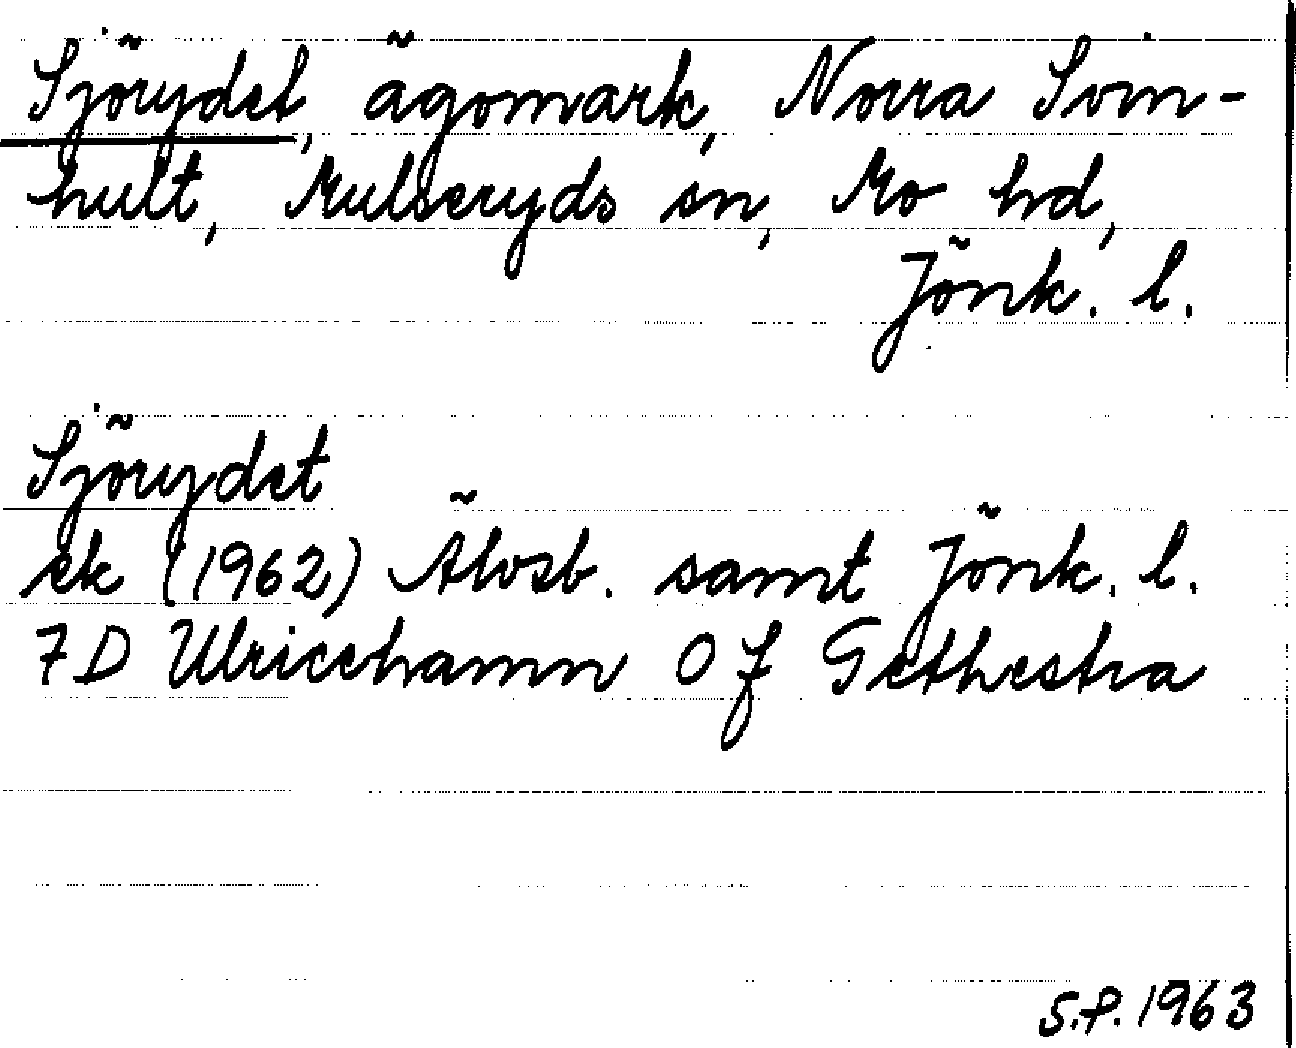 Sjörydet, ägomark, Norra Svin-
hult, Mulseryds sn, Mo hd,
Jönk. l.
Sjörydet
ek (1962) Älvsb. samt Jönk. l.
7D Ulricehamn 0f Gethestra
S.P. 1963